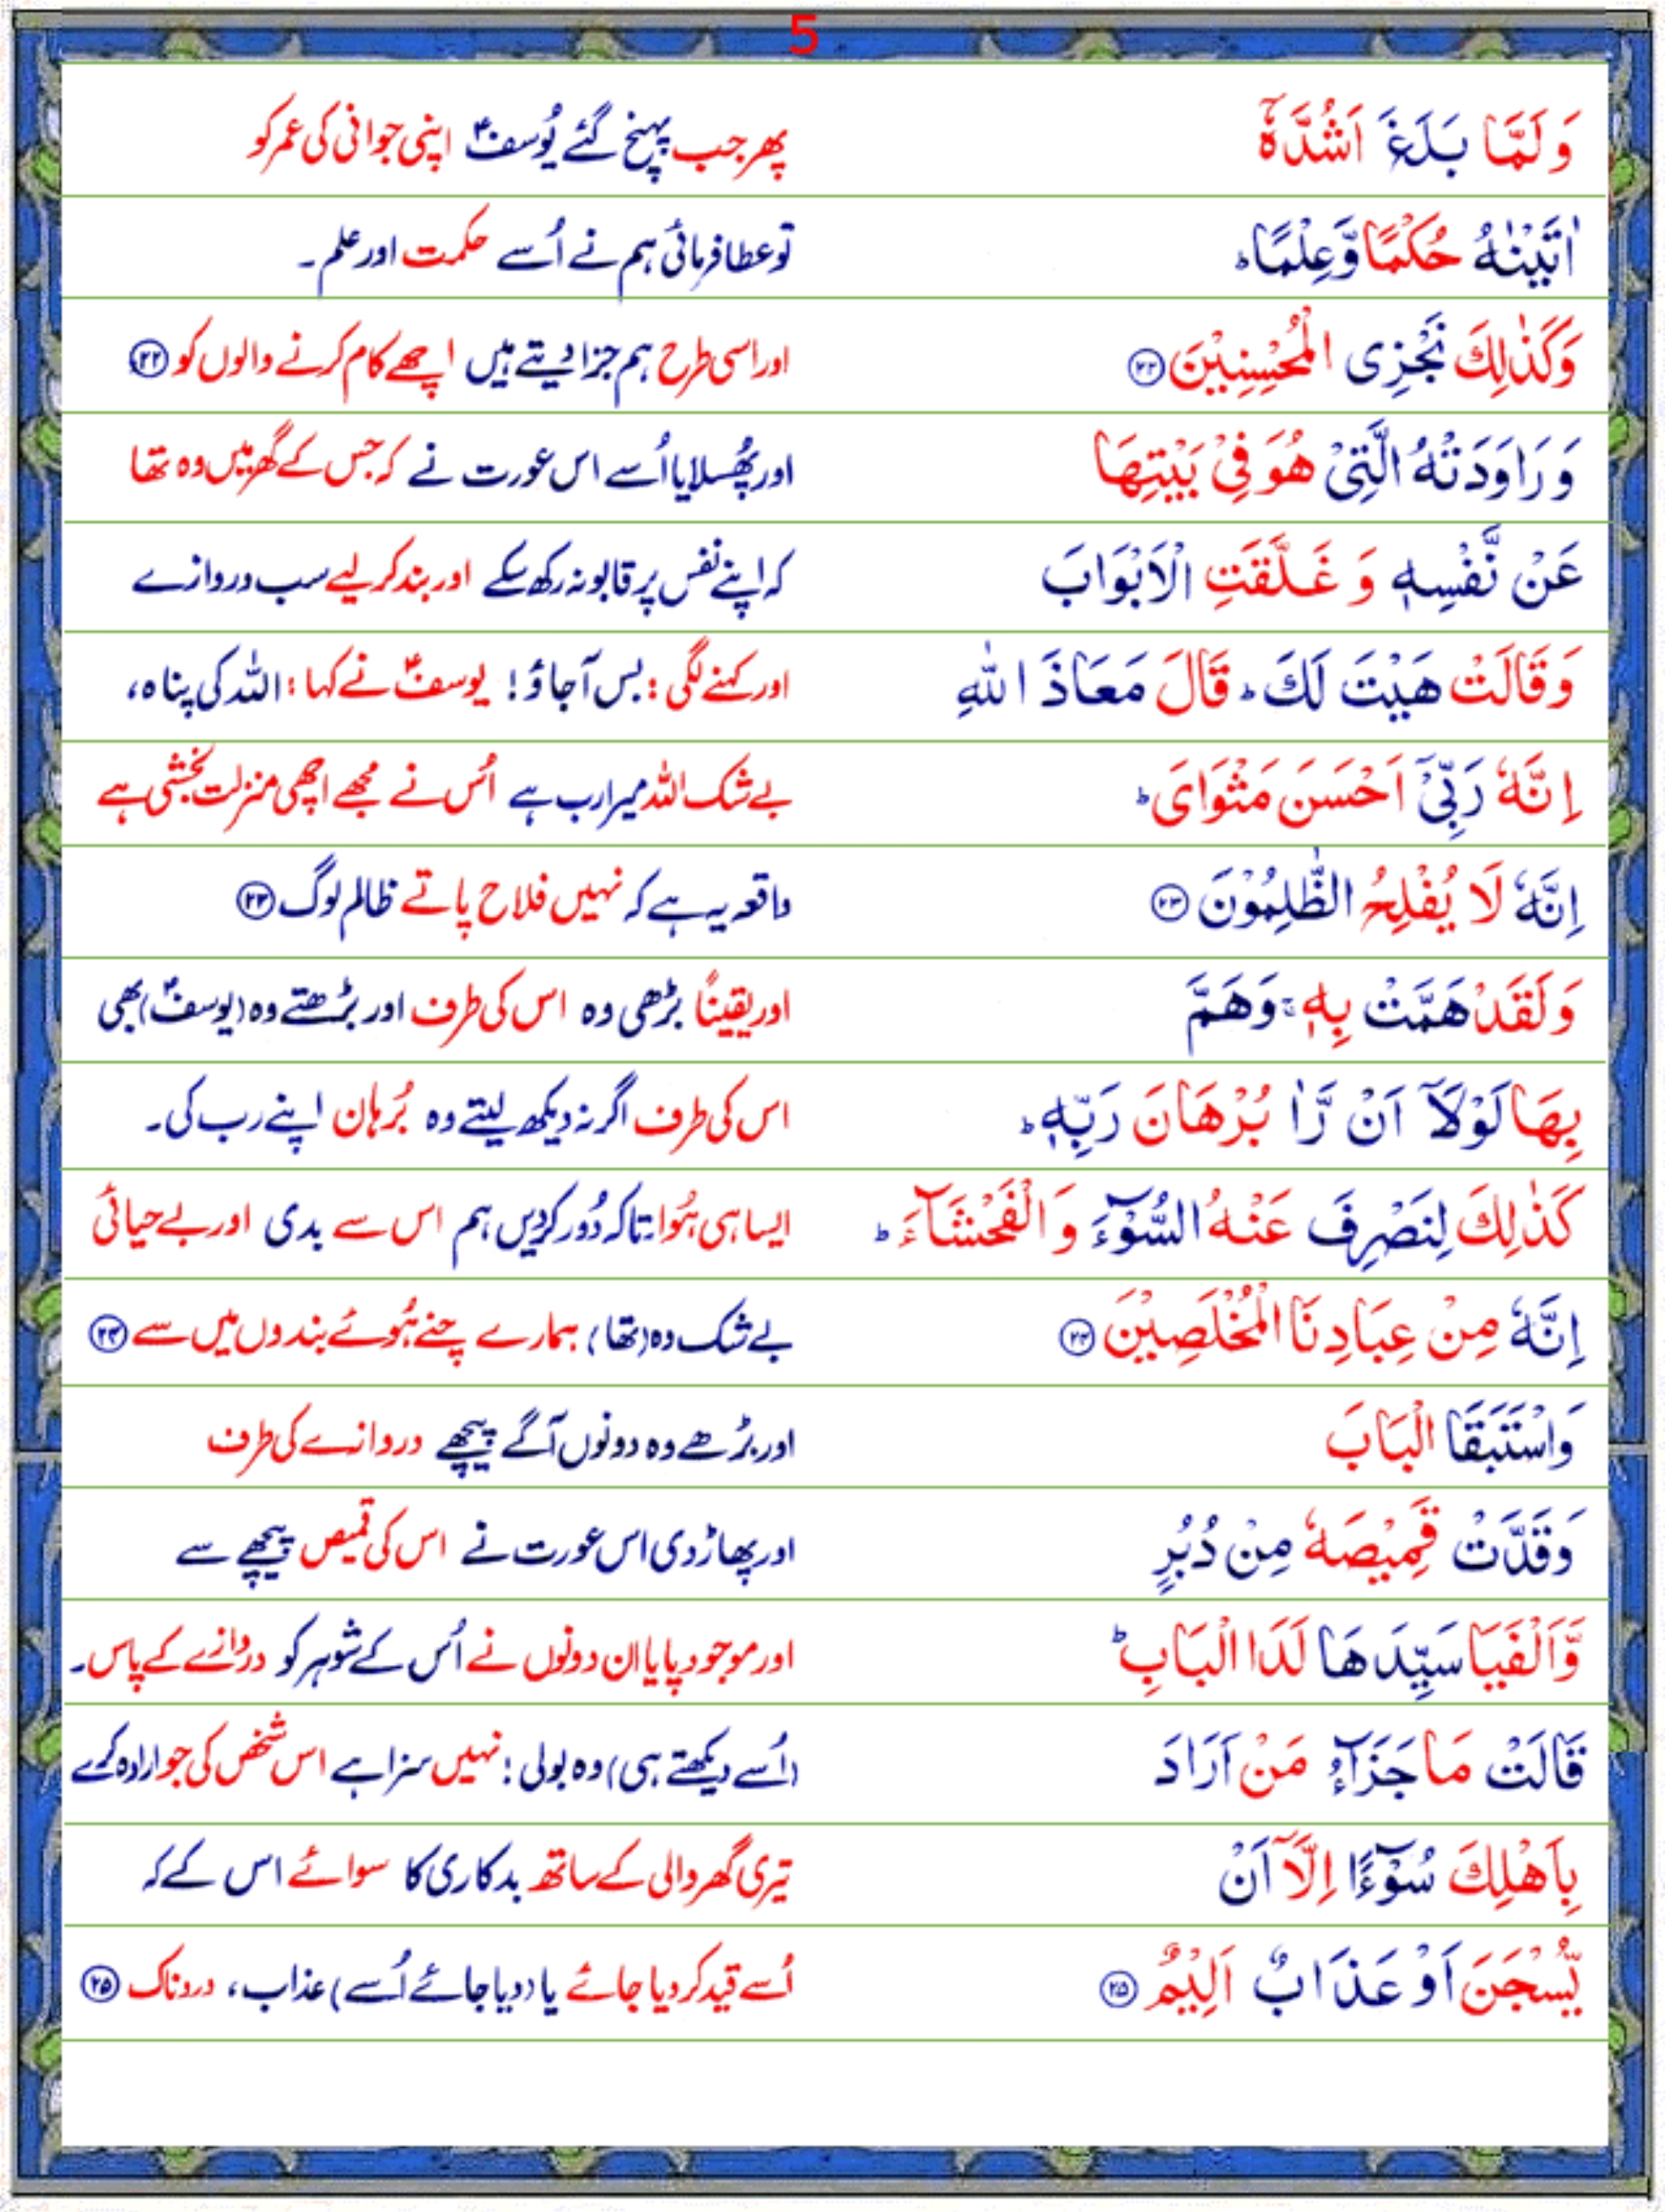 5
وَلَمَّا بَلَغَ اَشُدَّهٗۤ پھر جب پہنچ گئے یُوسفؑ اپنی جوانی کی عمر کو
اٰتَيْنٰهُ حُكْمًا وَّعِلْمًا ؕ تو عطا فرمائی ہم نے اُسے حکمت اور علم ۔
وَكَذٰلِكَ نَجْزِى الْمُحْسِنِيْنَ ﴿۲۲﴾ اور اسی طرح ہم جزا دیتے ہیں اچھے کام کرنے والوں کو ﴿۲۲﴾
وَرَاوَدَتْهُ الَّتِىْ هُوَ فِىْ بَيْتِهَا اور پھُسلایا اُسے اس عورت نے کہ جس کے گھر میں وہ تھا
عَنْ نَّفْسِهٖ وَ غَلَّقَتِ الْاَبْوَابَ کہ اپنے نفس پر قابو نہ رکھ سکے اور بند کر لیے سب دروازے
وَقَالَتْ هَيْتَ لَكَ ؕ قَالَ مَعَاذَ اللّٰهِ اور کہنے لگی : بس آ جاؤ ! یوسفؑ نے کہا : اللہ کی پناہ ،
اِنَّهٗ رَبِّىْۤ اَحْسَنَ مَثْوَاىَ ؕ بے شک اللہ میرا رب ہے اُس نے مجھے اچھی منزلت بخشی ہے
اِنَّهٗ لَا يُفْلِحُ الظّٰلِمُوْنَ ﴿۲۳﴾ واقعہ یہ ہے کہ نہیں فلاح پاتے ظالم لوگ ﴿۲۳﴾
وَلَقَدْ هَمَّتْ بِهٖ ۚ وَهَمَّ اور یقیناً بڑھی وہ اس کی طرف اور بڑھتے وہ (یوسفؑ) بھی
بِهَا لَوْلَاۤ اَنْ رَّاٰ بُرْهَانَ رَبِّهٖ ؕ اس کی طرف اگر نہ دیکھ لیتے وہ بُرہان اپنے رب کی ۔
كَذٰلِكَ لِنَصْرِفَ عَنْهُ السُّوْٓءَ وَالْفَحْشَآءَ ؕ ایسا ہی ہُوا تاکہ دُور کر دیں ہم اس سے بدی اور بے حیائی
اِنَّهٗ مِنْ عِبَادِنَا الْمُخْلَصِيْنَ ﴿۲۴﴾ بے شک وہ (تھا) ہمارے چنے ہُوئے بندوں میں سے ﴿۲۴﴾
وَاسْتَبَقَا الْبَابَ اور بڑھے وہ دونوں آگے پیچھے دروازے کی طرف
وَقَدَّتْ قَمِيْصَهٗ مِنْ دُبُرٍ اور پھاڑ دی اس عورت نے اس کی قمیص پیچھے سے
وَّاَلْفَيَا سَيِّدَهَا لَدَا الْبَابِ ؕ اور موجود پایا ان دونوں نے اُس کے شوہر کو دروازے کے پاس ۔
قَالَتْ مَا جَزَآءُ مَنْ اَرَادَ (اُسے دیکھتے ہی) وہ بولی : نہیں سزا ہے اس شخص کی جو ارادہ کرے
بِاَهْلِكَ سُوْٓءًا اِلَّاۤ اَنْ تیری گھر والی کے ساتھ بدکاری کا سوائے اس کے کہ
يُّسْجَنَ اَوْ عَذَابٌ اَلِيْمٌ ﴿۲۵﴾ اُسے قید کر دیا جائے یا (دیا جائے اُسے) عذاب ، دردناک ﴿۲۵﴾